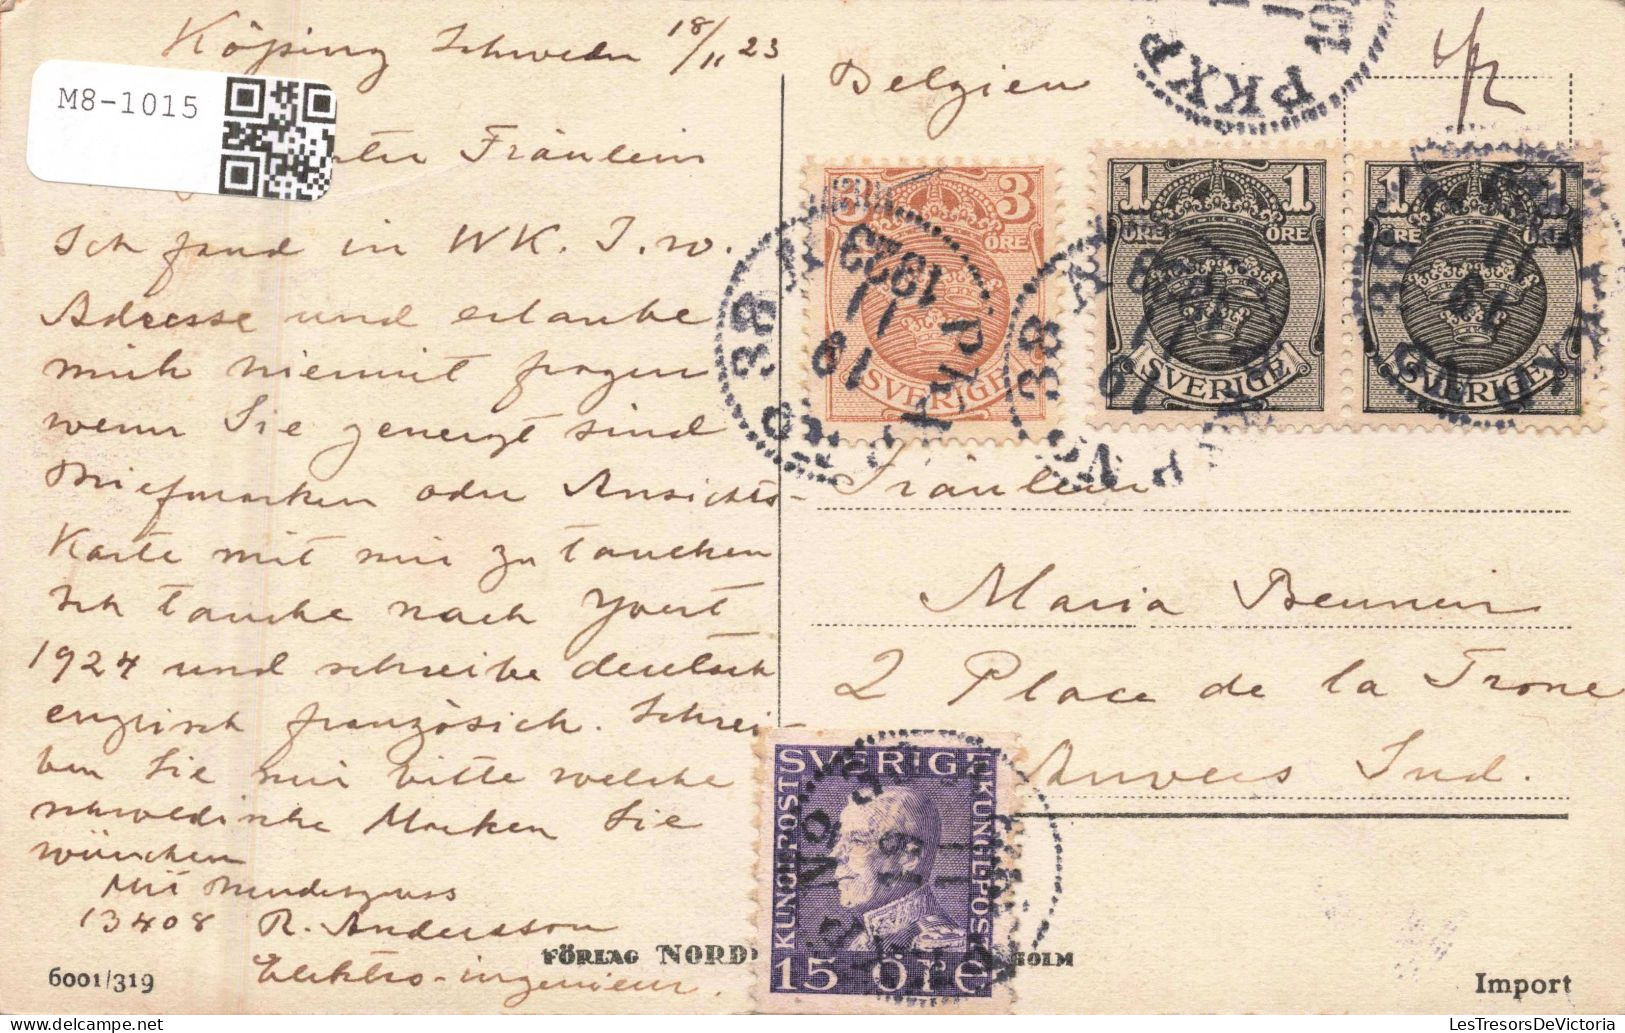 Köping Schweden 18/11 23
M8-1015
Fräulein
Ich fand in WK. I. w.
Adresse und erlaube
mich hiermit fragen
wenn Sie geneigt sind
Briefmarken oder Ansichts-
Karte mit mir zu tauchen
Ich tauche nach Yvert
1924 und schreibe deutsch
englisch französich. Schrei-
ben Sie mir bitte welche
schwedische Marken Sie
wünchen
Mit
13408 R. Andersson
Elektro-ingenieur.
6001/319
FÖRLAG NORD
HOLM
Import
Belgien
PKXP
3 3
ÖRE
SVERIGE
1 1
ÖRE ÖRE
SVERIGE
1 1
ÖRE ÖRE
SVERIGE
PKXP No 38
19 11 1923
Fräulein
Maria
2 Place de la Trone
Anvers Sud.
SVERIGE
KUNGL·POST
KUNGL·POST
15 ÖRE